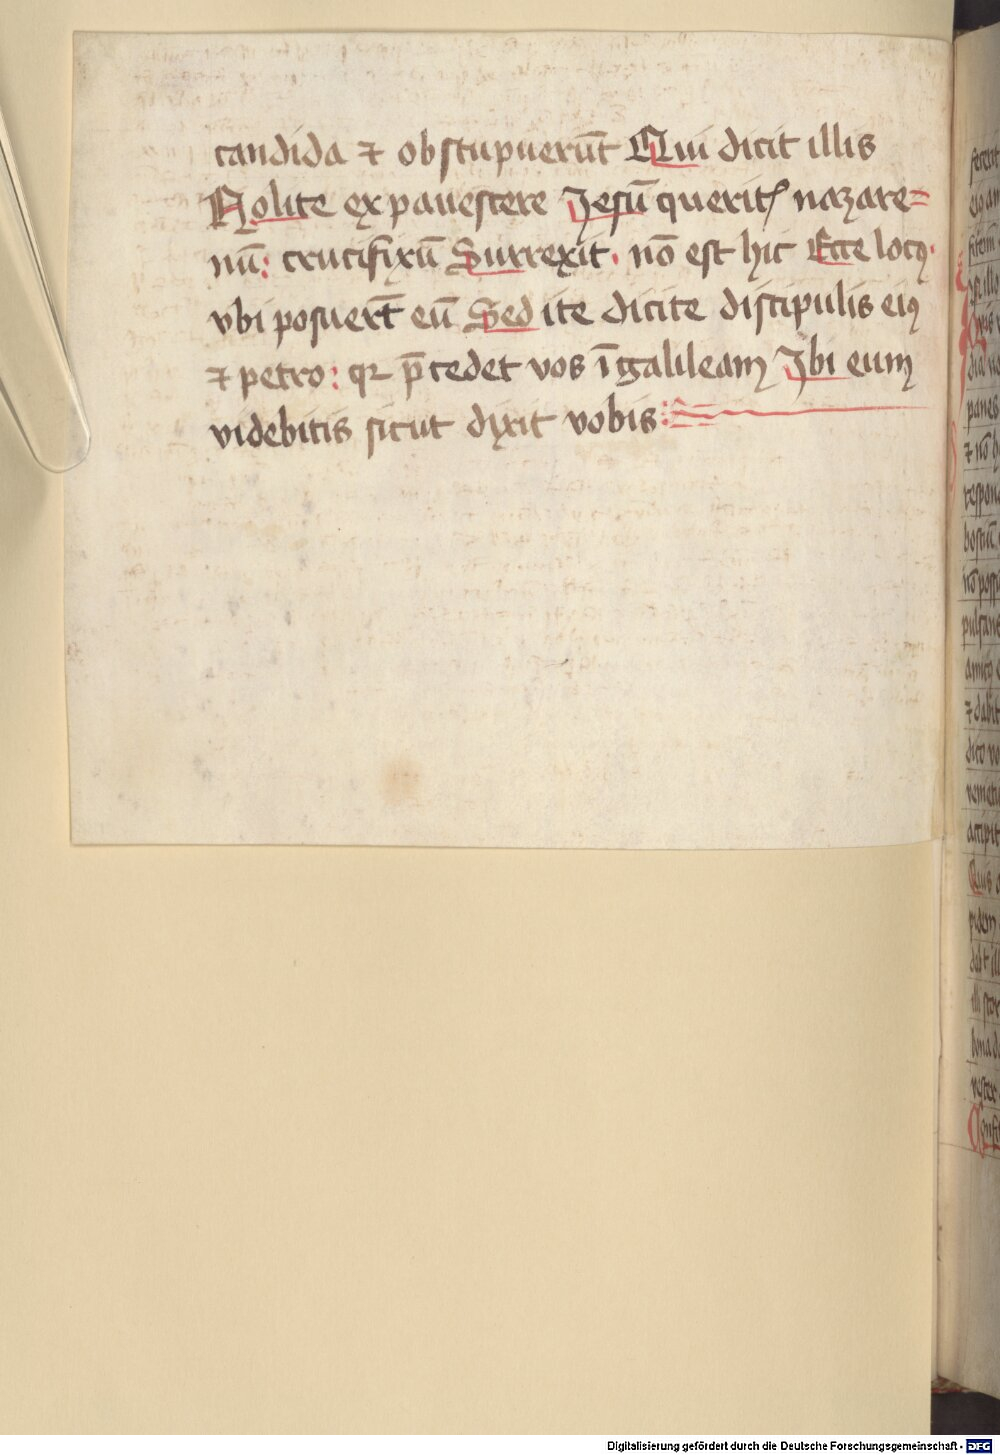 candida ⁊ obstupuerūt Qui dicit illis
Nolite expauescere Jesū querit nazare=
nū: crucifixū Surrexit· nō est hic Ecce locꝯ·
vbi posuert̄ eū Sed ite dicite discipulis eiꝯ
⁊ petro: qꝛ p̄cedet vos ī galileam Jbi eum
videbitis sicut dixit vobis:
respon
panes
⁊ nō
⁊ dabit
dico vo
Quis
pidem
bona d
Digitalisierung gefördert durch die Deutsche Forschungsgemeinschaft - DFG